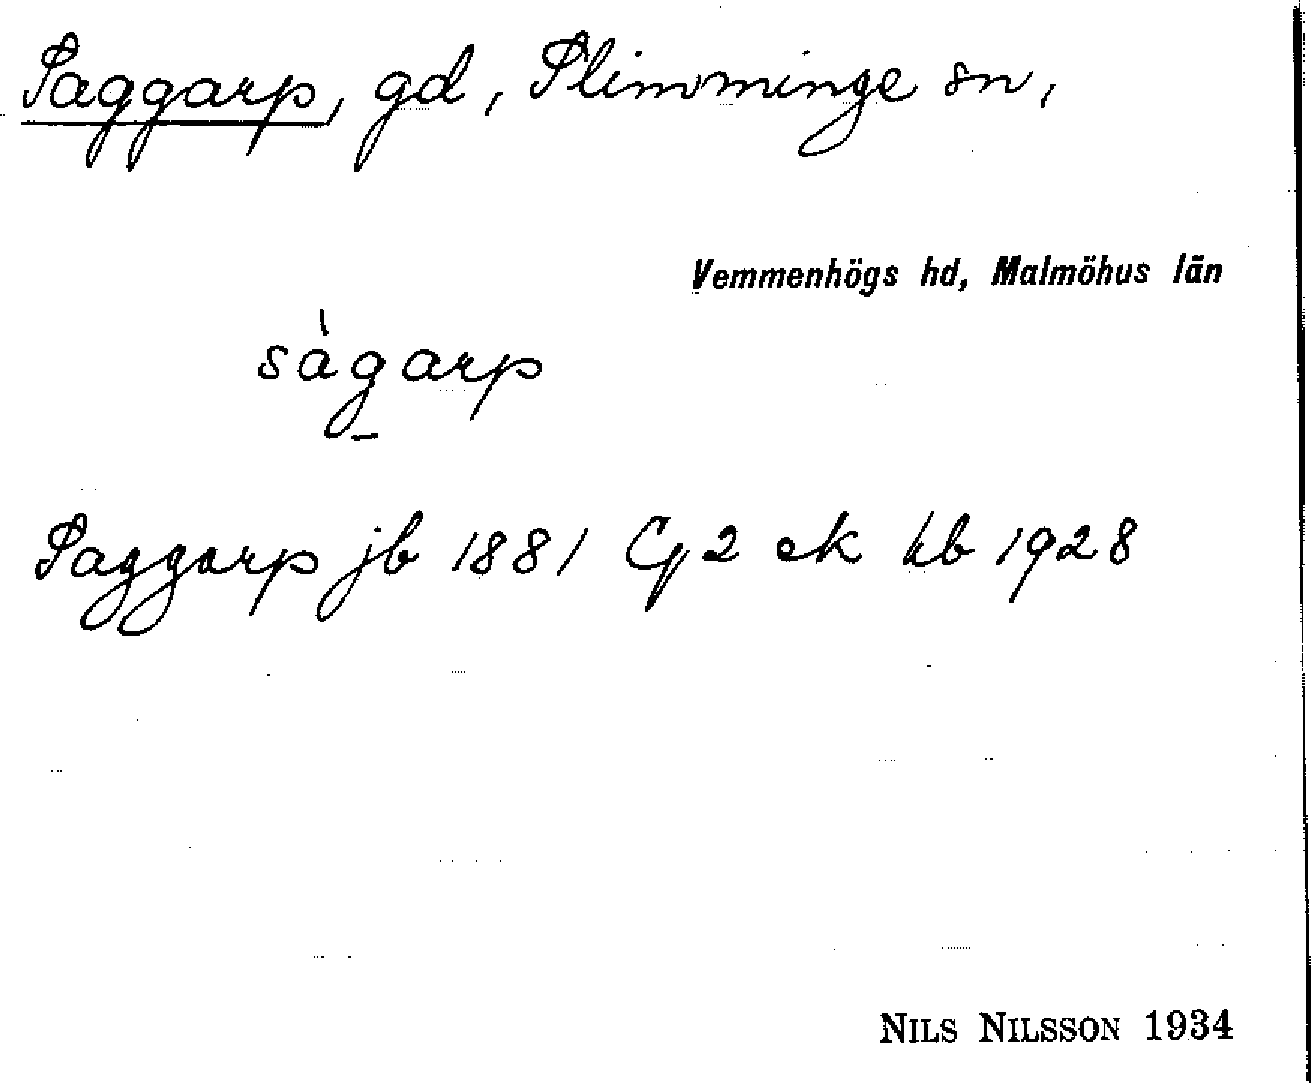 Saggarp, gd, Slimminge sn,
Vemmenhögs hd, Malmöhus län
sàgarp
Saggarp jb 1881 Cg 2 ek kb 1928
NILS NILSSON 1934